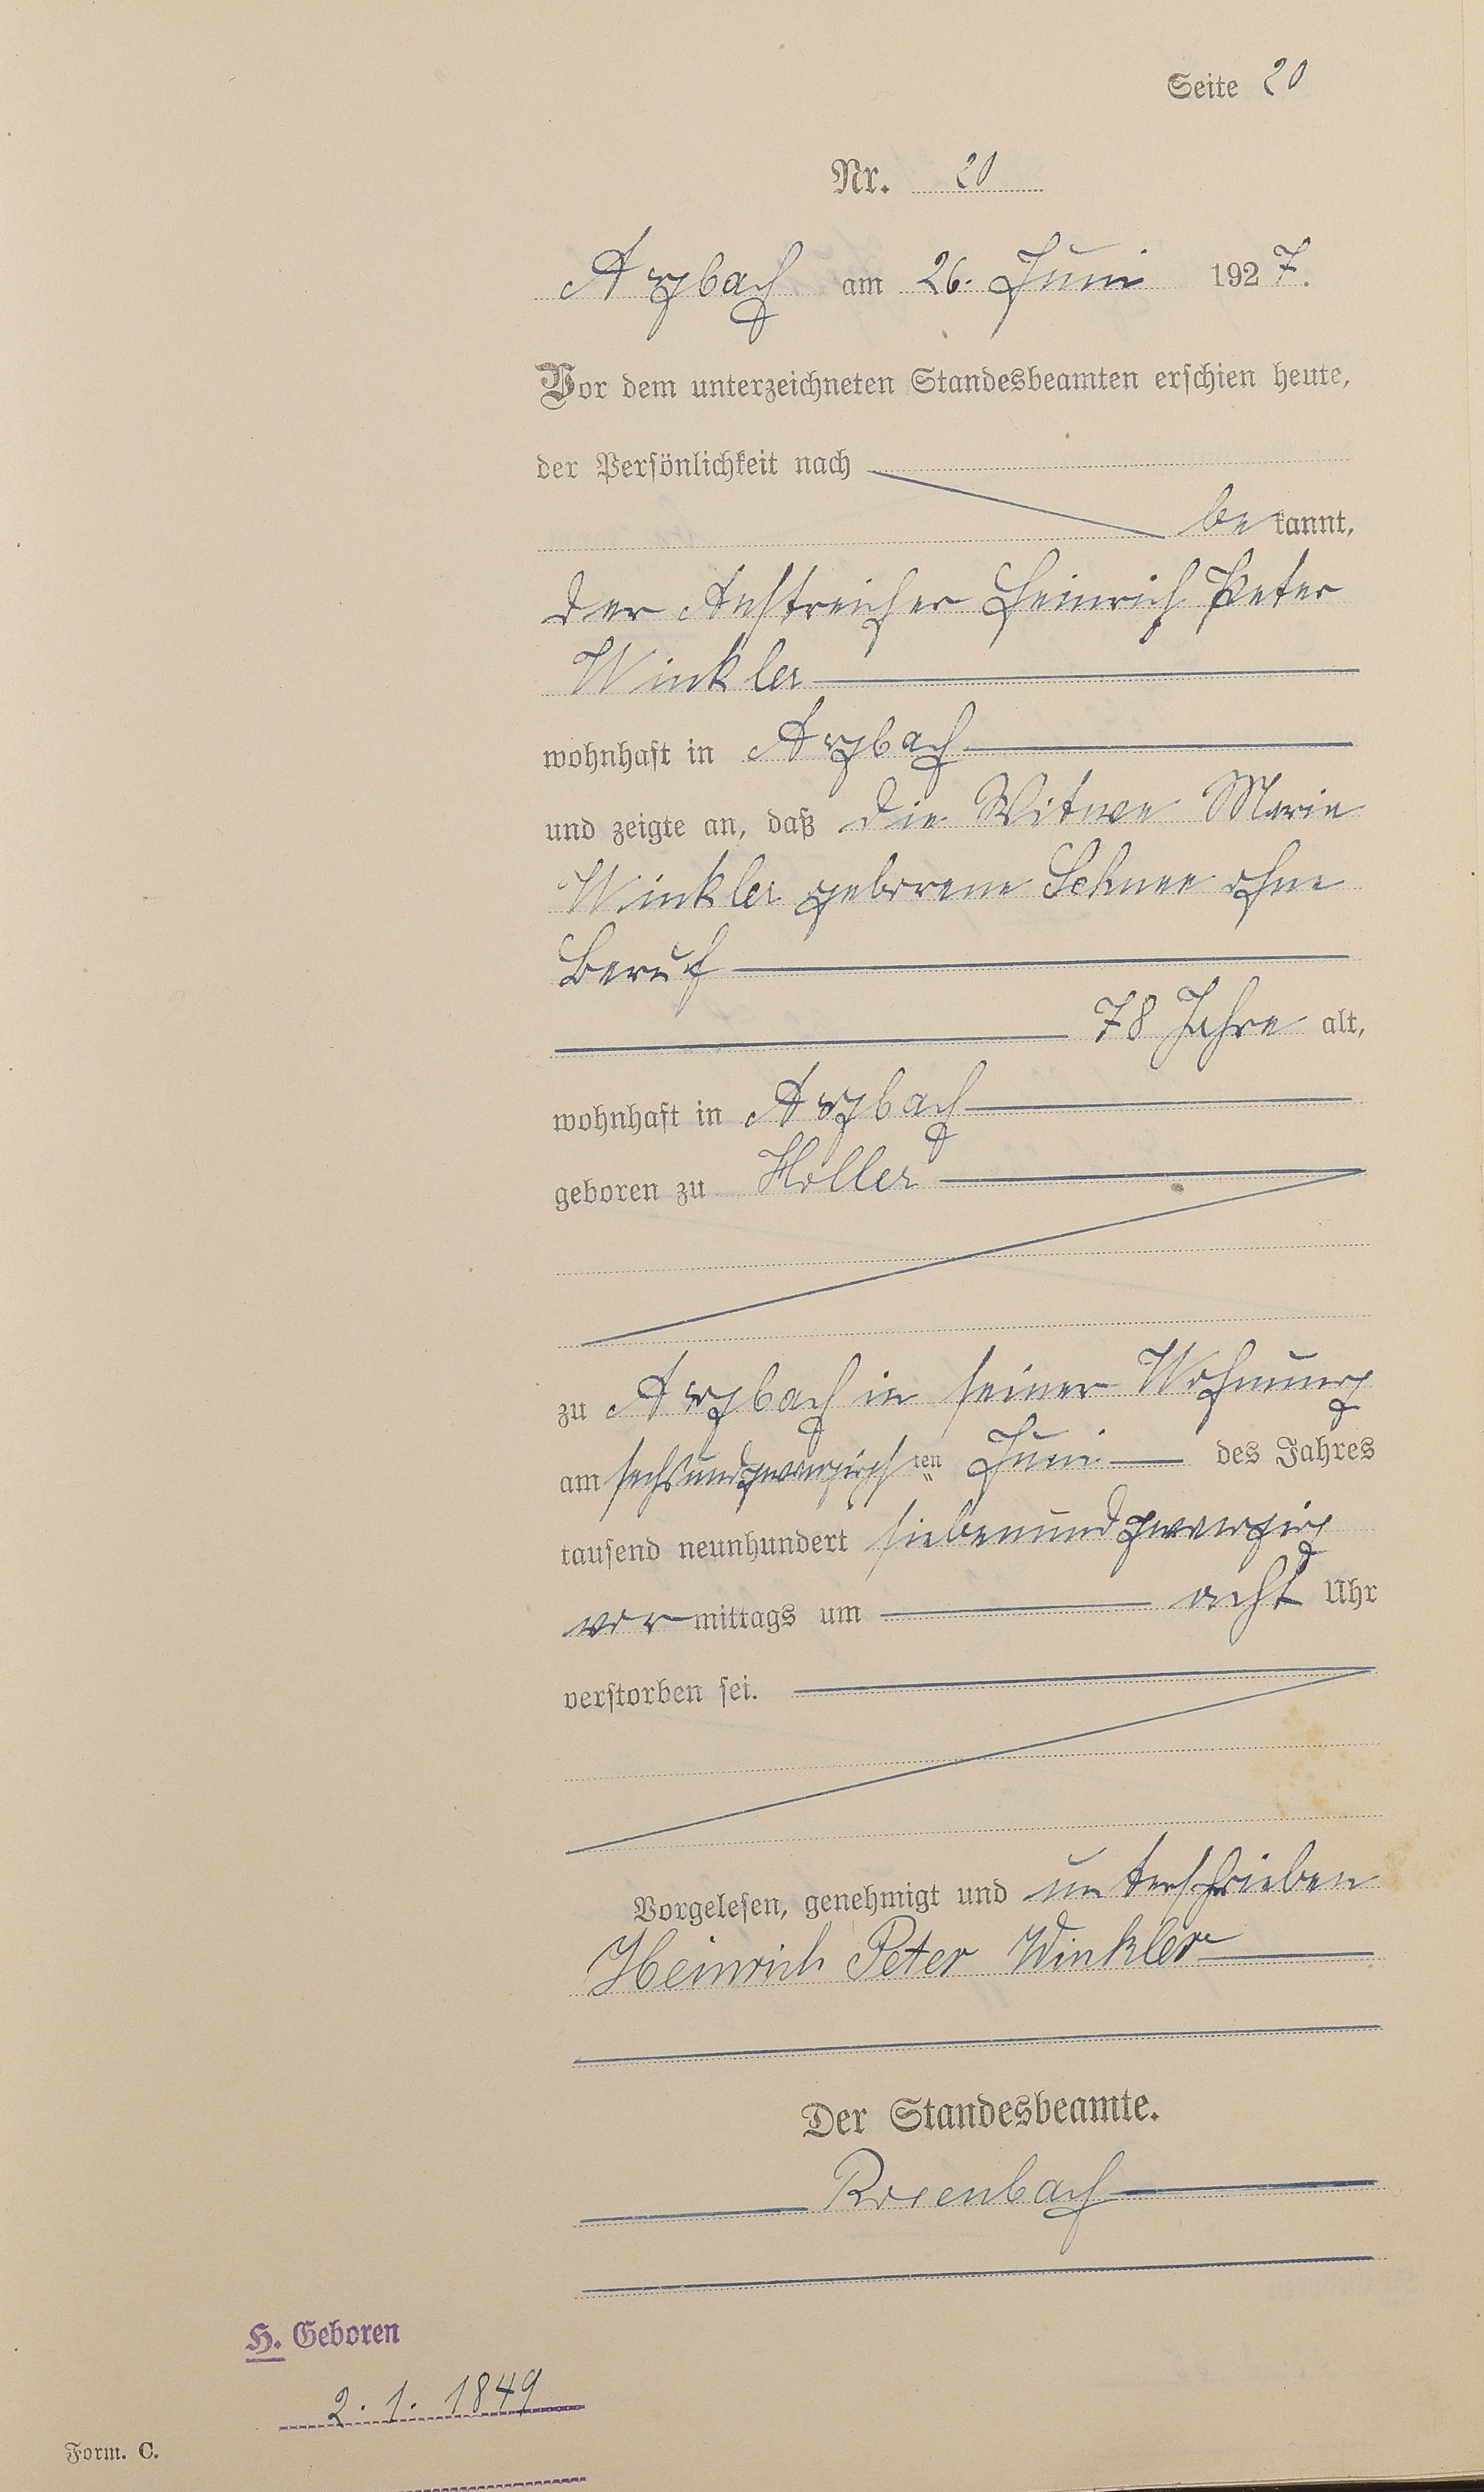 Seite 20
Nr. 20
Arzbach am 26. Juni 1927.
Vor dem unterzeichneten Standesbeamten erschien heute,
der Persönlichkeit nach
bekannt,
der Anstreicher Heinrich Peter
Winkler
wohnhaft in Arzbach
und zeigte an, daß die Witwe Marie
Winkler geborene Schnee ohne
Beruf
78 Jahre alt,
wohnhaft in Arzbach
geboren zu Holler
zu Arzbach in seiner Wohnung
am sechsundzwanzigsten Juni des Jahres
tausend neunhundert siebenundzwanzig
vormittags um acht Uhr
verstorben sei.
Vorgelesen, genehmigt und unterschrieben
Heinrich Peter Winkler
Der Standesbeamte.
Rosenbach
H. Geboren
2. 1. 1849
Form. C.